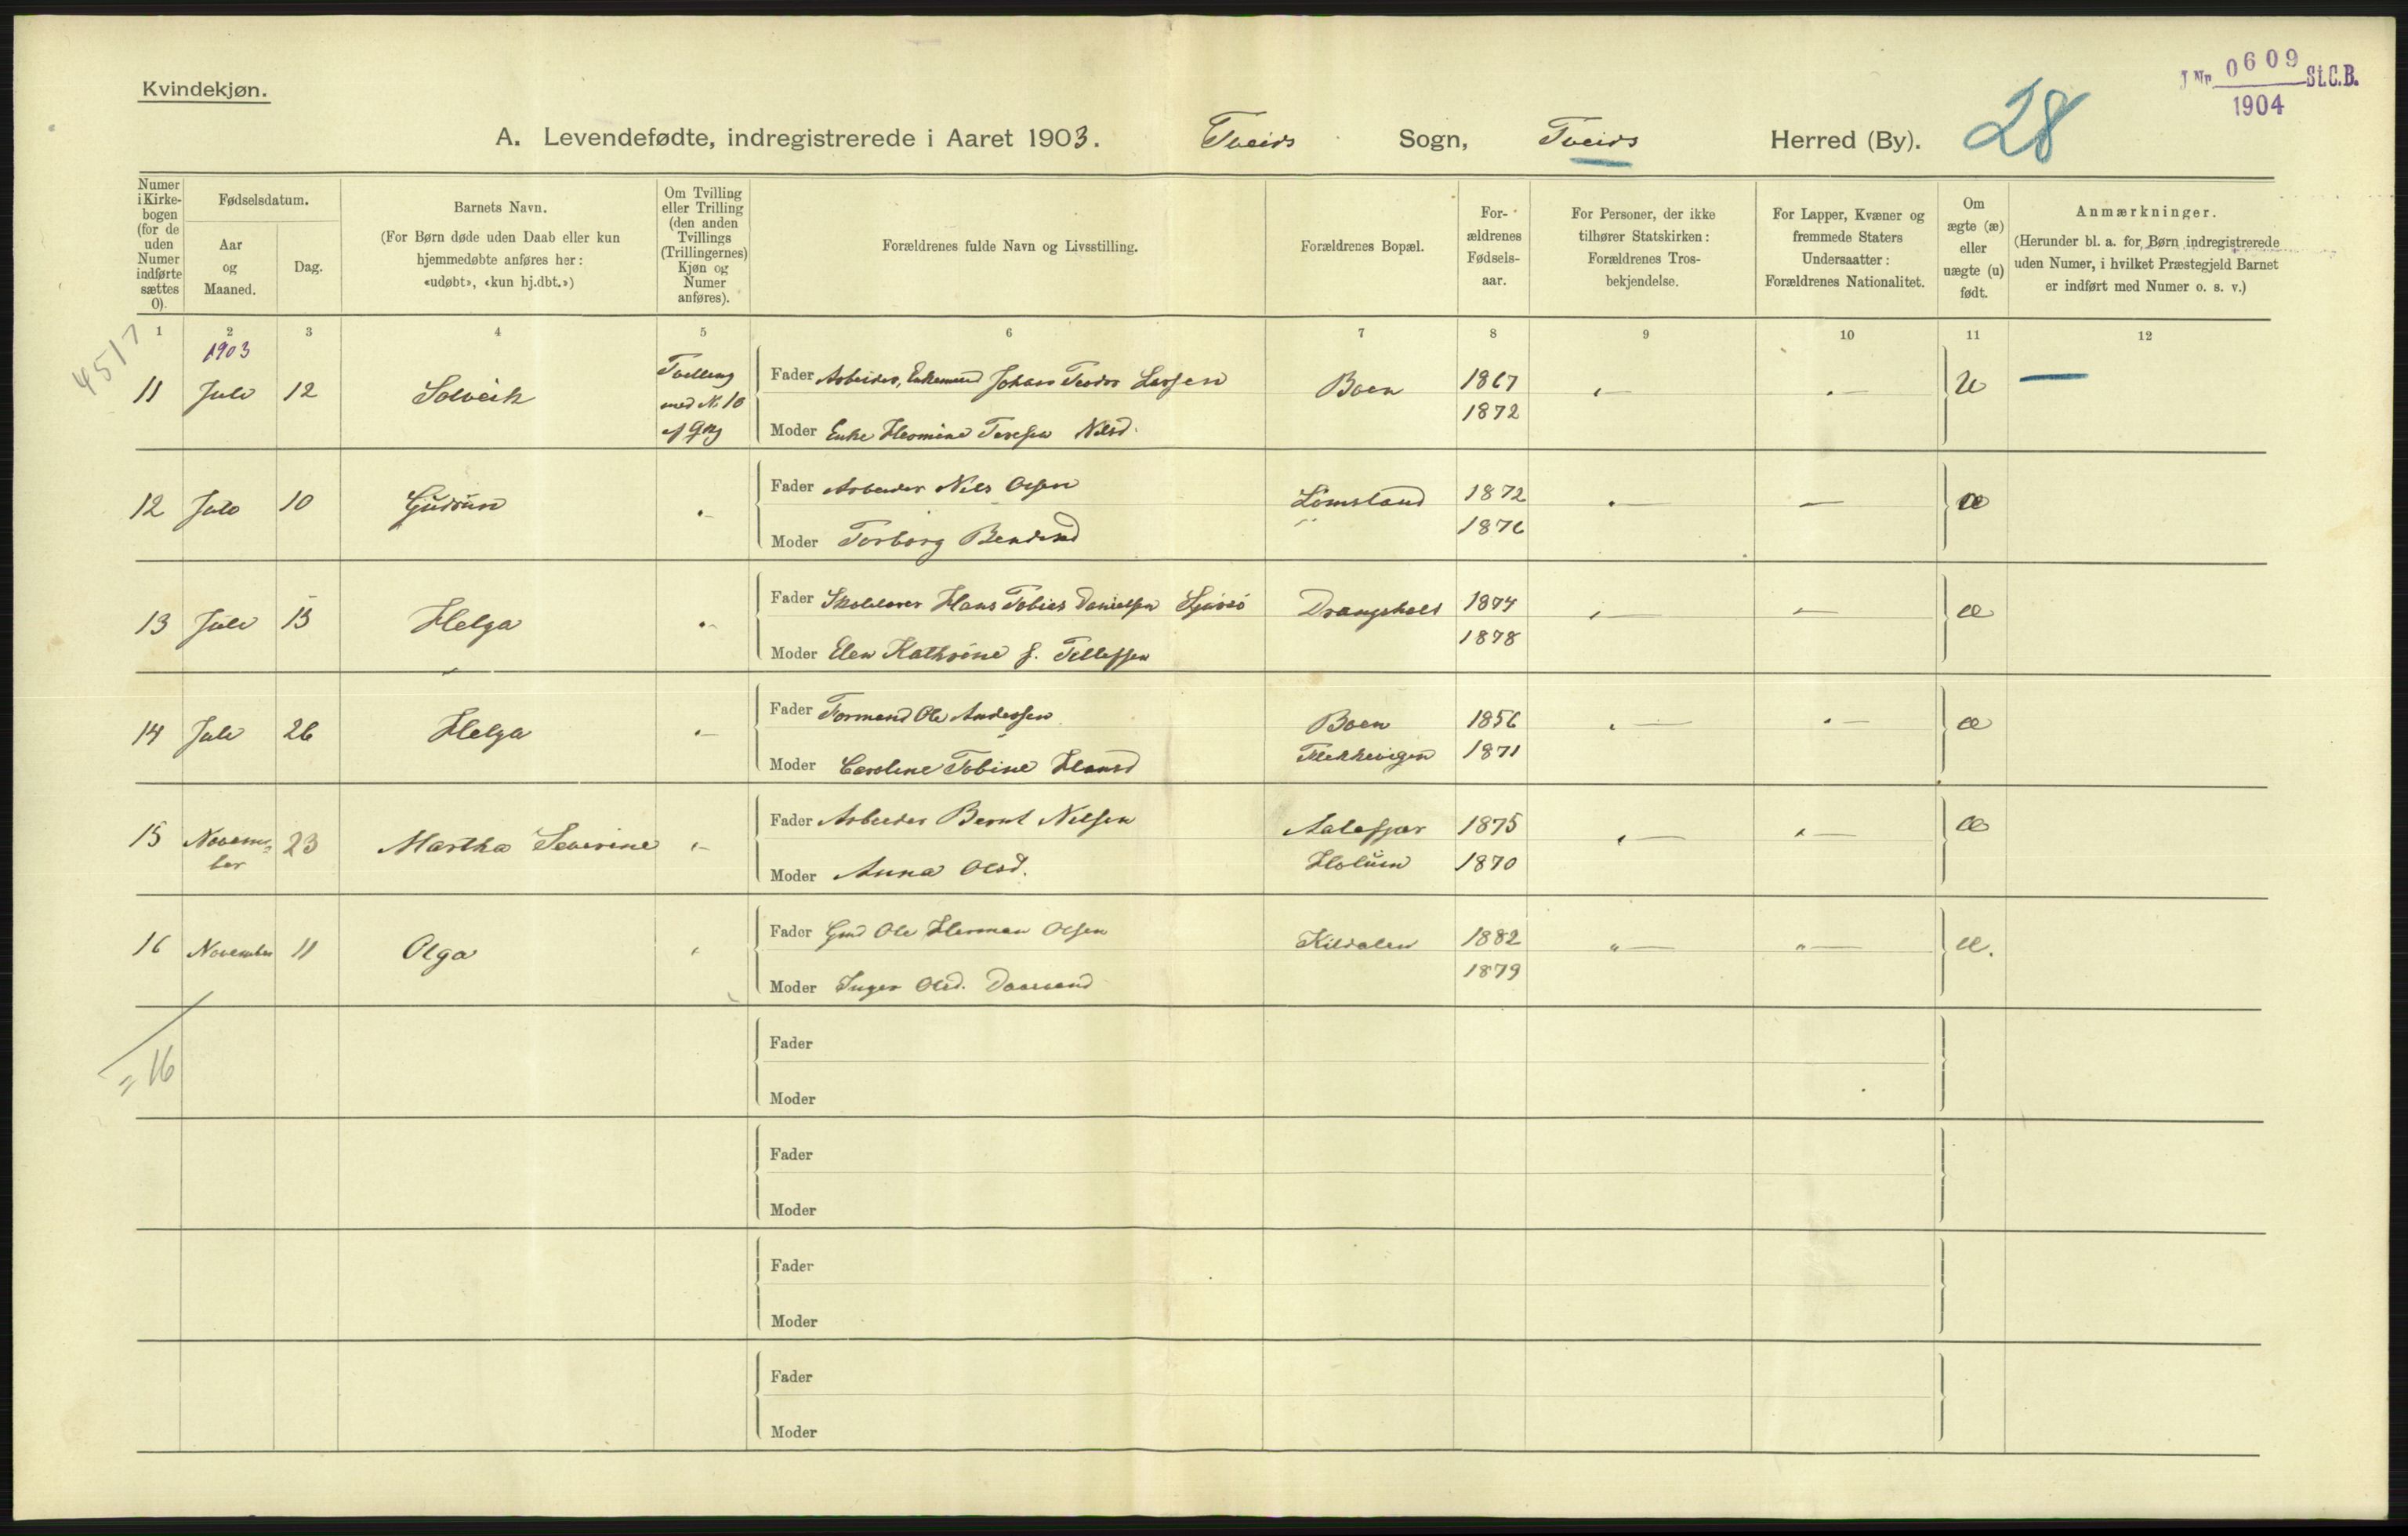 Kvindekjøn.
J.Nr. 0609 St.C.B.
1904
A. Levendefødte, indregistrerede i Aaret 1903. Tveids Sogn, Tveids Herred (By). 28
Numer i Kirkebogen (for de uden Numer indførte sættes 0).
Fødselsdatum.
Aar og Maaned.
Dag.
Barnets Navn.
(For Børn døde uden Daab eller kun hjemmedøbte anføres her: «udøbt», «kun hj.dbt.»)
Om Tvilling eller Trilling (den anden Tvillings (Trillingernes) Kjøn og Numer anføres).
Forældrenes fulde Navn og Livsstilling.
Forældrenes Bopæl.
Forældrenes Fødselsaar.
For Personer, der ikke tilhører Statskirken: Forældrenes Trosbekjendelse.
For Lapper, Kvæner og fremmede Staters Undersaatter: Forældrenes Nationalitet.
Om ægte (æ) eller uægte (u) født.
Anmærkninger.
(Herunder bl. a. for Børn indregistrerede uden Numer, i hvilket Præstegjeld Barnet er indført med Numer o. s. v.)
1 2 3 4 5 6 7 8 9 10 11 12
1903
45/7
11 Juli 12 Solveik Tvilling med N. 10 Fader Arbeider, Enkemand Johan Teodor Larsen Boen 1867 u
Moder Enke Hermine Terese Nilsd. 1872
12 Juli 10 Gudrun Fader Arbeider Nils Olsen Lömsland 1872 æ
Moder Torborg Bendixd 1876
13 Juli 15 Helga Fader Skolelærer Hans Tobias Danielsen Drangsholt 1874 æ
Moder Elen Kathrine f. Tellefsen 1878
14 Juli 26 Helga Fader Formand Ole Andersen Boen 1856 æ
Moder Caroline Tobine Hansd Flekkevigen 1871
15 November 23 Martha Severine Fader Arbeider Bernt Nilsen Aalefjær 1875 æ
Moder Anna Olsd. Holum 1870
16 November 11 Olga Fader Gmd Ole Herman Olsen Kildalen 1882 æ.
Moder Inger Olsd. 1879
= 16
Fader
Moder
Fader
Moder
Fader
Moder
Fader
Moder